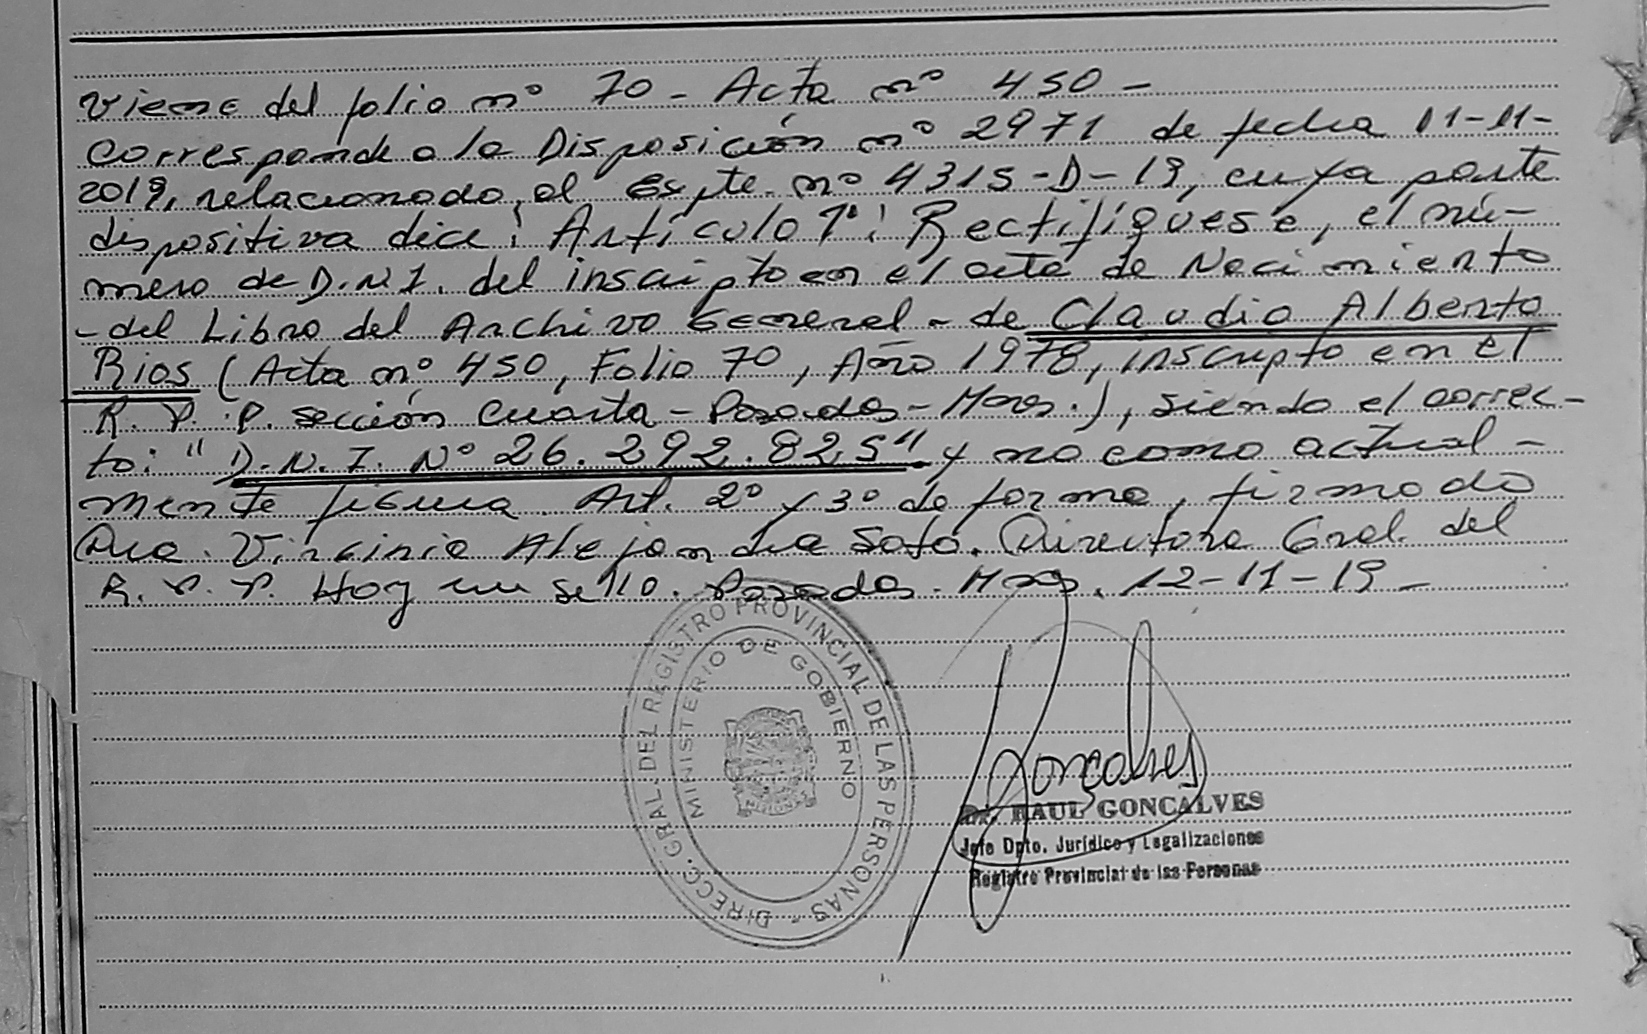 Viene del folio nº 70 - Acta nº 450 -
Corresponde a la Disposición nº 2971 de fecha 11-11-
2019, relacionado al Expte. nº 4315-D-19, cuya parte
dispositiva dice: Artículo 1º: Rectifíquese, el nú-
mero de D.N.I. del inscripto en el acta de Nacimiento
-del Libro del Archivo General - de Claudio Alberto
Rios (Acta nº 450, Folio 70, Año 1978, inscripto en el
R. P. P. sección Cuarta - Posadas - Mnes.), siendo el correc-
to: "D.N.I. Nº 26.292.825" y no como actual-
mente figura. Art. 2º y 3º de forma, firmado
Dra. Virginia Alejandra Soto. Directora Gral. del
R. P. P. Hay un sello. Posadas. Mnes. 12-11-19 -
DIRECC. GRAL. DEL REGISTRO PROVINCIAL DE LAS PERSONAS -
MINISTERIO DE GOBIERNO
Gonçalves
Dr. RAUL GONCALVES
Jefe Dpto. Jurídico y Legalizaciones
Registro Provincial de las Personas